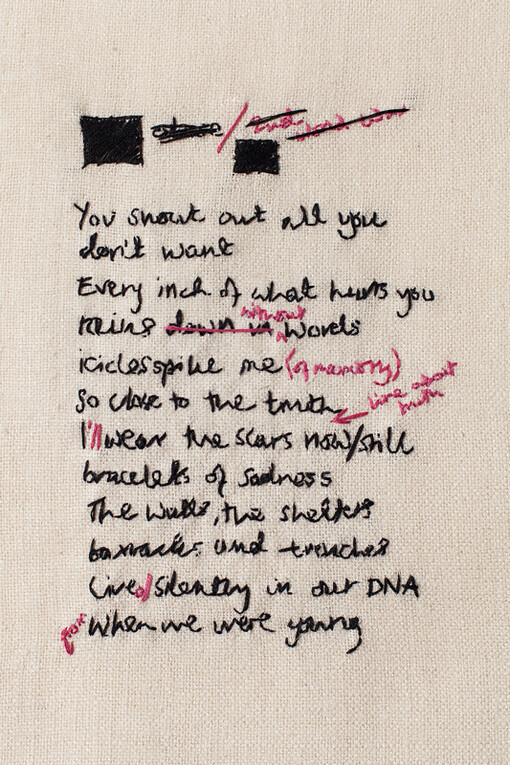 You shout out all you
don't want
Every inch of what hurts you
without
rains down in words
icicles spike me (of memory)
So close to the truth
line about
truth
I'll wear the scars now/still
bracelets of sadness
The walls, the shelters
barracks and trenches
Lived silently in our DNA
from When we were young